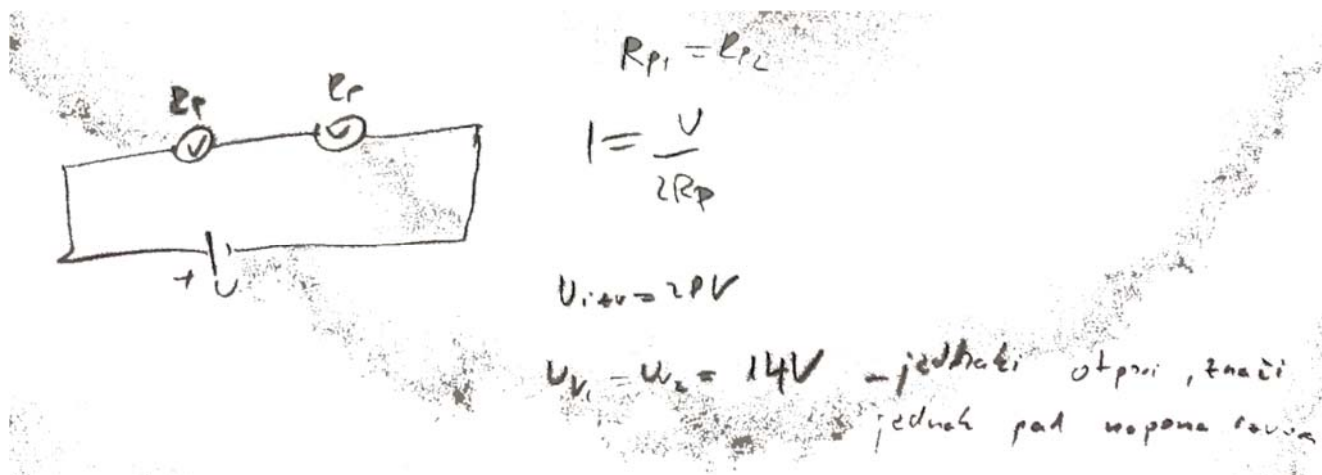 Rp Rp
V V
+ U
Rp₁ = Rp₂
I = U / 2Rp
Uizv = 28V
Uv₁ = Uv₂ = 14V - jednaki otpori, znači
jednak pad napona